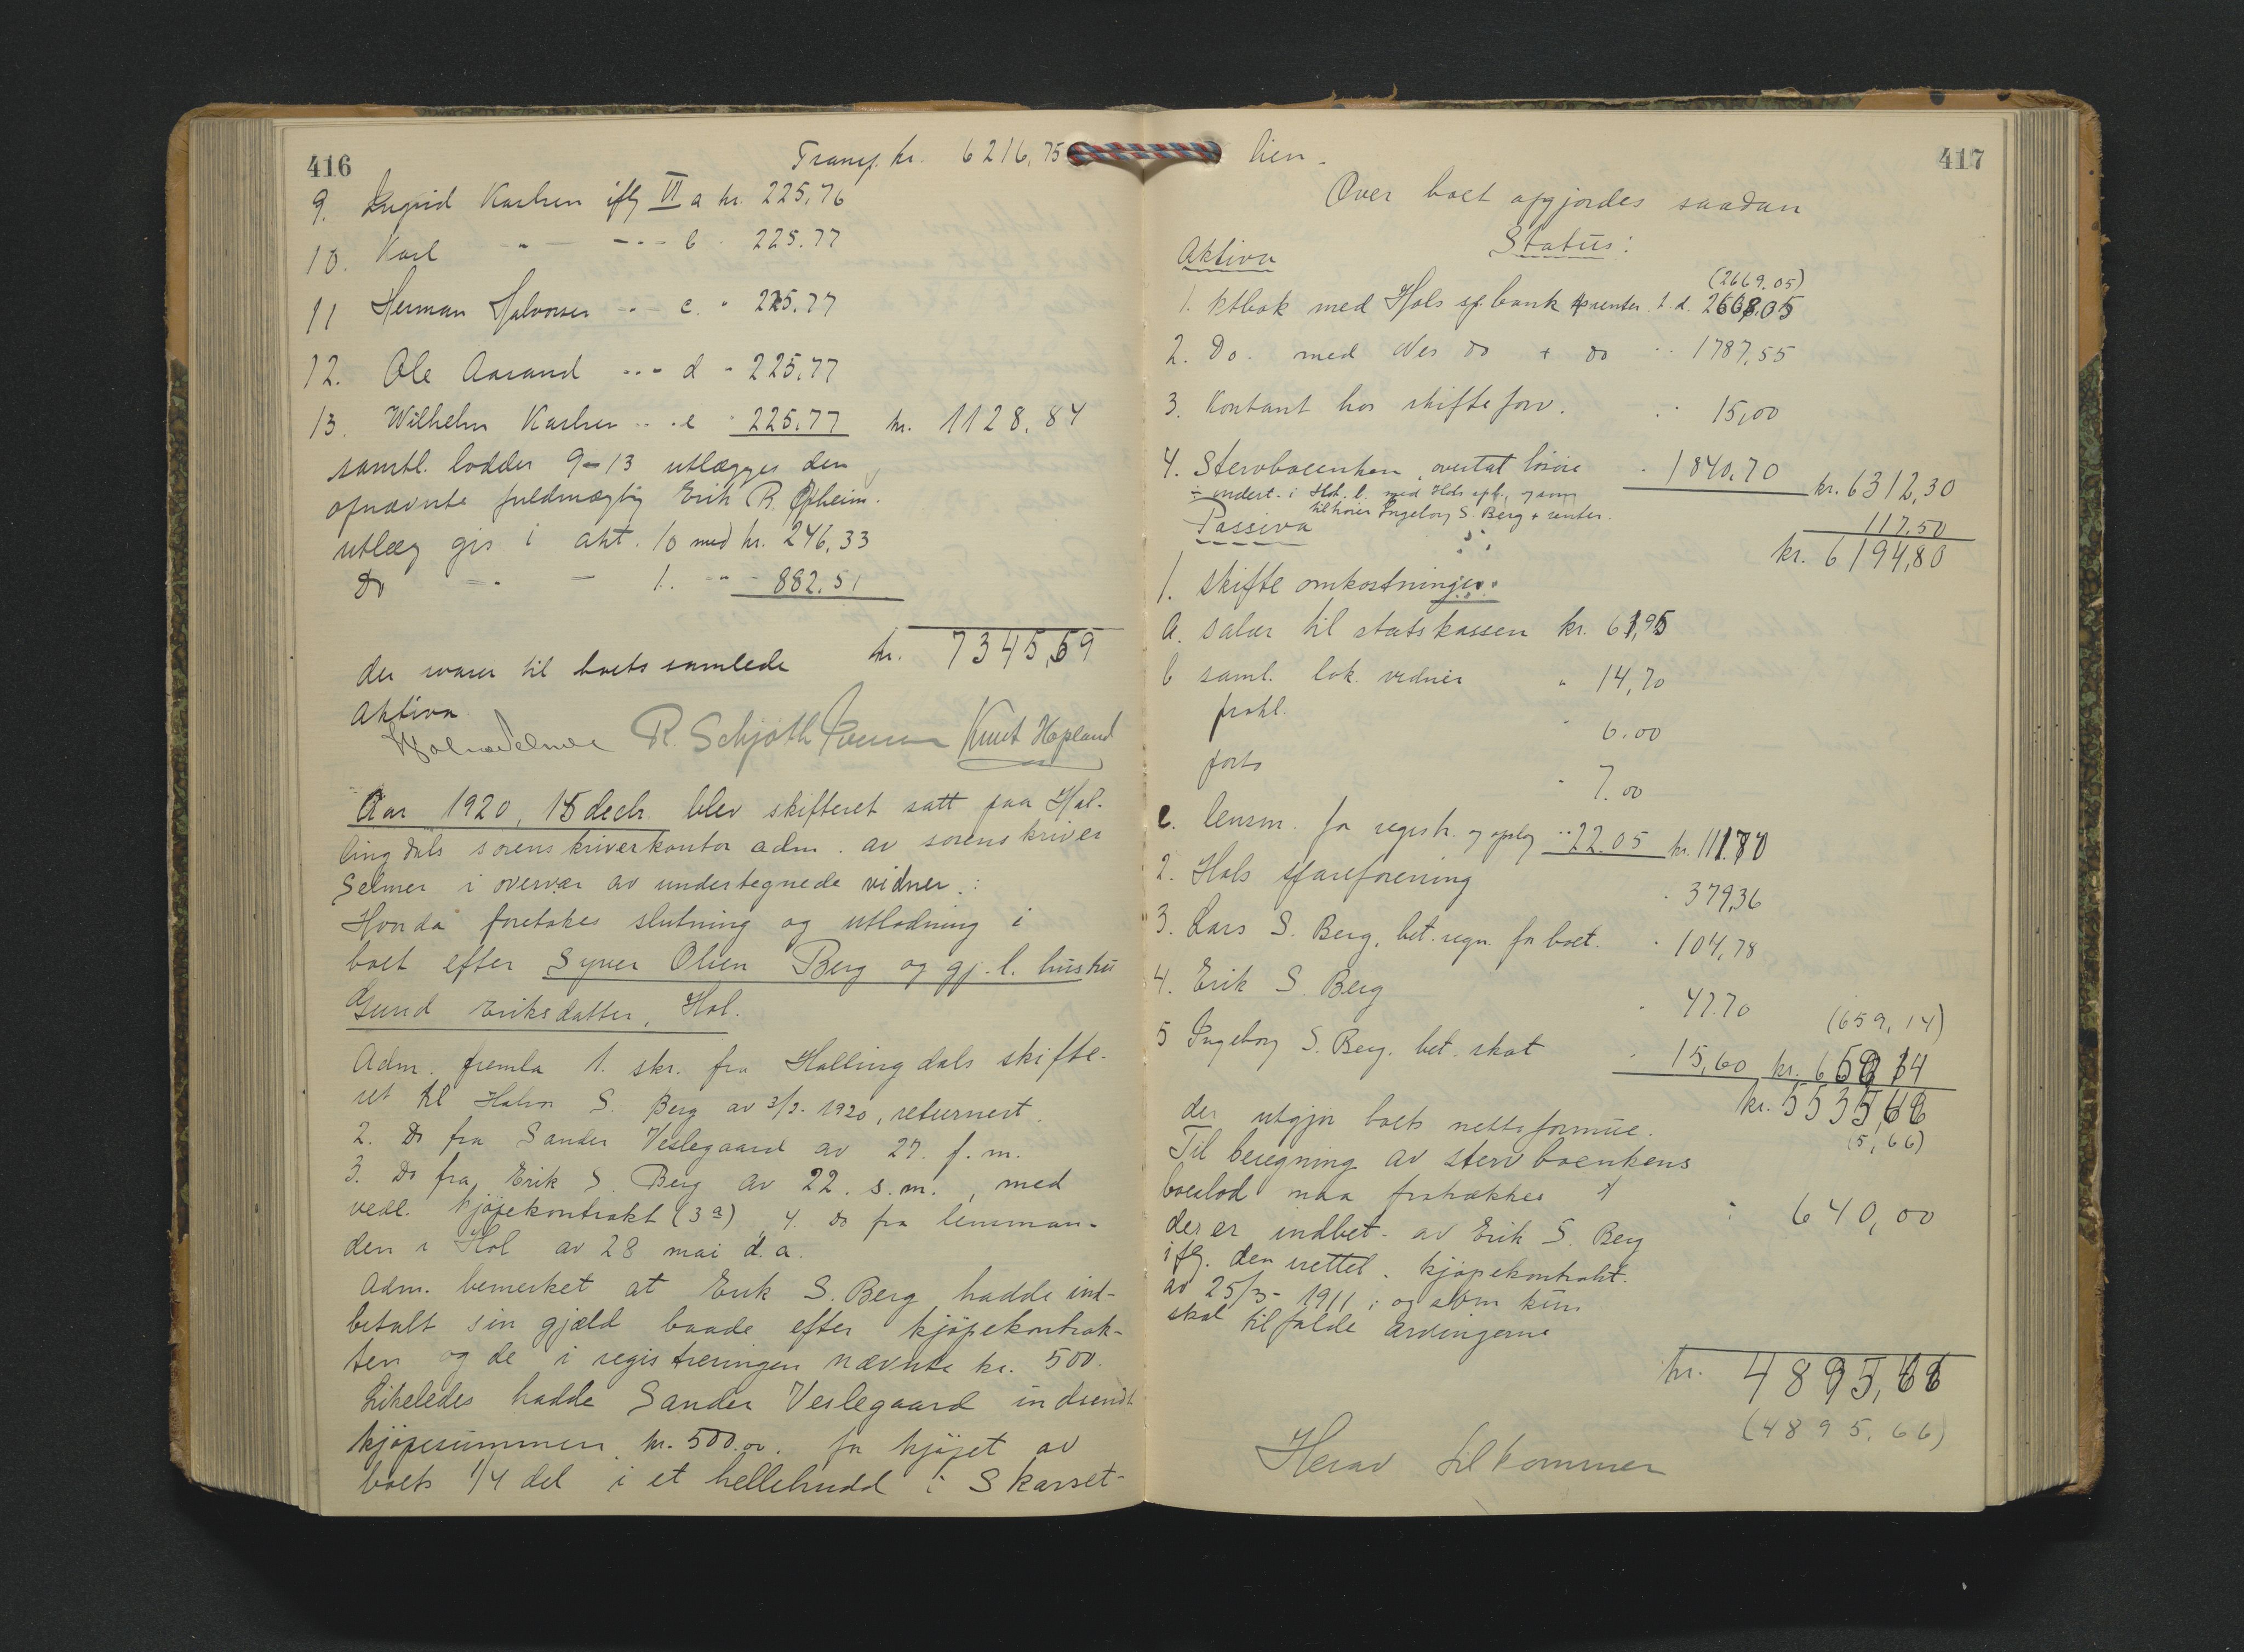 416
Transp. kr. 6216,75
9. Ingrid Karlsen iflg VI a kr. 225,76
10. Karl " — — - - b " 225.77
11 Herman Halvorsen " - c. " 225.77
12. Ole Aasand - - - d - 225,77
13. Wilhelm Karlsen - . . e " 225.77 kr. 1128,84
samtl. lodder 9-13 utlægges den
opnævnte fuldmægtig Erik R. Opheim.
utlæg gis i akt. 10 med kr. 246,33
Do - - — 1. - - - 882.51
kr. 7345,59
der svarer til boets samlede
Aktiva
R. Schjøth Iversen Knut Hopland
Aar 1920, 15 decbr. blev skifteret satt paa Hal-
lingdals sorenskriverkontor adm. av sorenskriver
Selmer i overvær av undertegnede vidner:
Hvorda foretokes slutning og utlodning i
boet efter Syver Olsen Berg og gj.l. hustru
Gund Eriksdatter, Hol.
Adm. fremla 1. skr. fra Hallingdals skifte-
ret til Halvor S. Berg av 3/3. 1920, returnert.
2. Do fra Sander Veslegaard av 27. f.m.
3. Do fra Erik S. Berg av 22. s.m., med
vedl. kjøpekontrakt (3a), 4. do fra lensman-
den i Hol av 28 mai d.a.
Adm. bemerket at Erik S. Berg hadde ind-
betalt sin gjæld baade efter kjøpekontrak-
ten og de i registreringen nævnte kr. 500.
Likeledes hadde Sander Veslegaard indsendt
kjøpesummen kr. 500.00. for kjøpet av
boets 1/4 del i et hellebrudd i Skarset-
417
lien -
Over boet opgjordes saadan
Status:
Aktiva
(2669.05)
1. ktbok med Hols sp.bank + renter t.d. 2668.05
2. Do. med Nes do + do - . 1787,55
3. Kontant hos skifteforv. . . 15,00
4. Stervboenken, overtat løsøre . 1840,70 kr. 6312,30
÷ indest. i ktb. l. med Hols spb., og som
tilhører Ingeborg S. Berg + renter. 117,50
Passiva
kr. 6194,80
1. skifteomkostninger:
a. salær til statskassen kr. 61,95
b saml. lok. vidner " 14,70
prokl. " 6.00
porto - 7.00
c. lensm. for registr. og opslag - - 22.05 kr. 111.70
2. Hols spareforening . 379,36
3. Lars S. Berg, bet. regn. for boet. . 104,78
4. Erik S. Berg . 47.70 (659,14)
5 Ingeborg S. Berg. bet. skat . 15,60 kr. 659 14
kr. 5535,66
der utgjør boets nettoformue. (5,66)
Til beregning av stervboenkens
boeslod maa fratrækkes : 640,00
der er indbet. av Erik S. Berg
iflg. den rettel. kjøpekontrakt.
av 25/3- 1911, og som kun
skal tilfalde arvingerne
kr. 4895,66
(4895,66)
Herav tilkommer